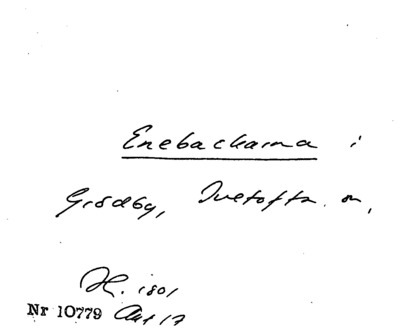 Enebackarna i
Grödby, Tvetofta. sn,
H. 1801
Nr 10779 Akt 17